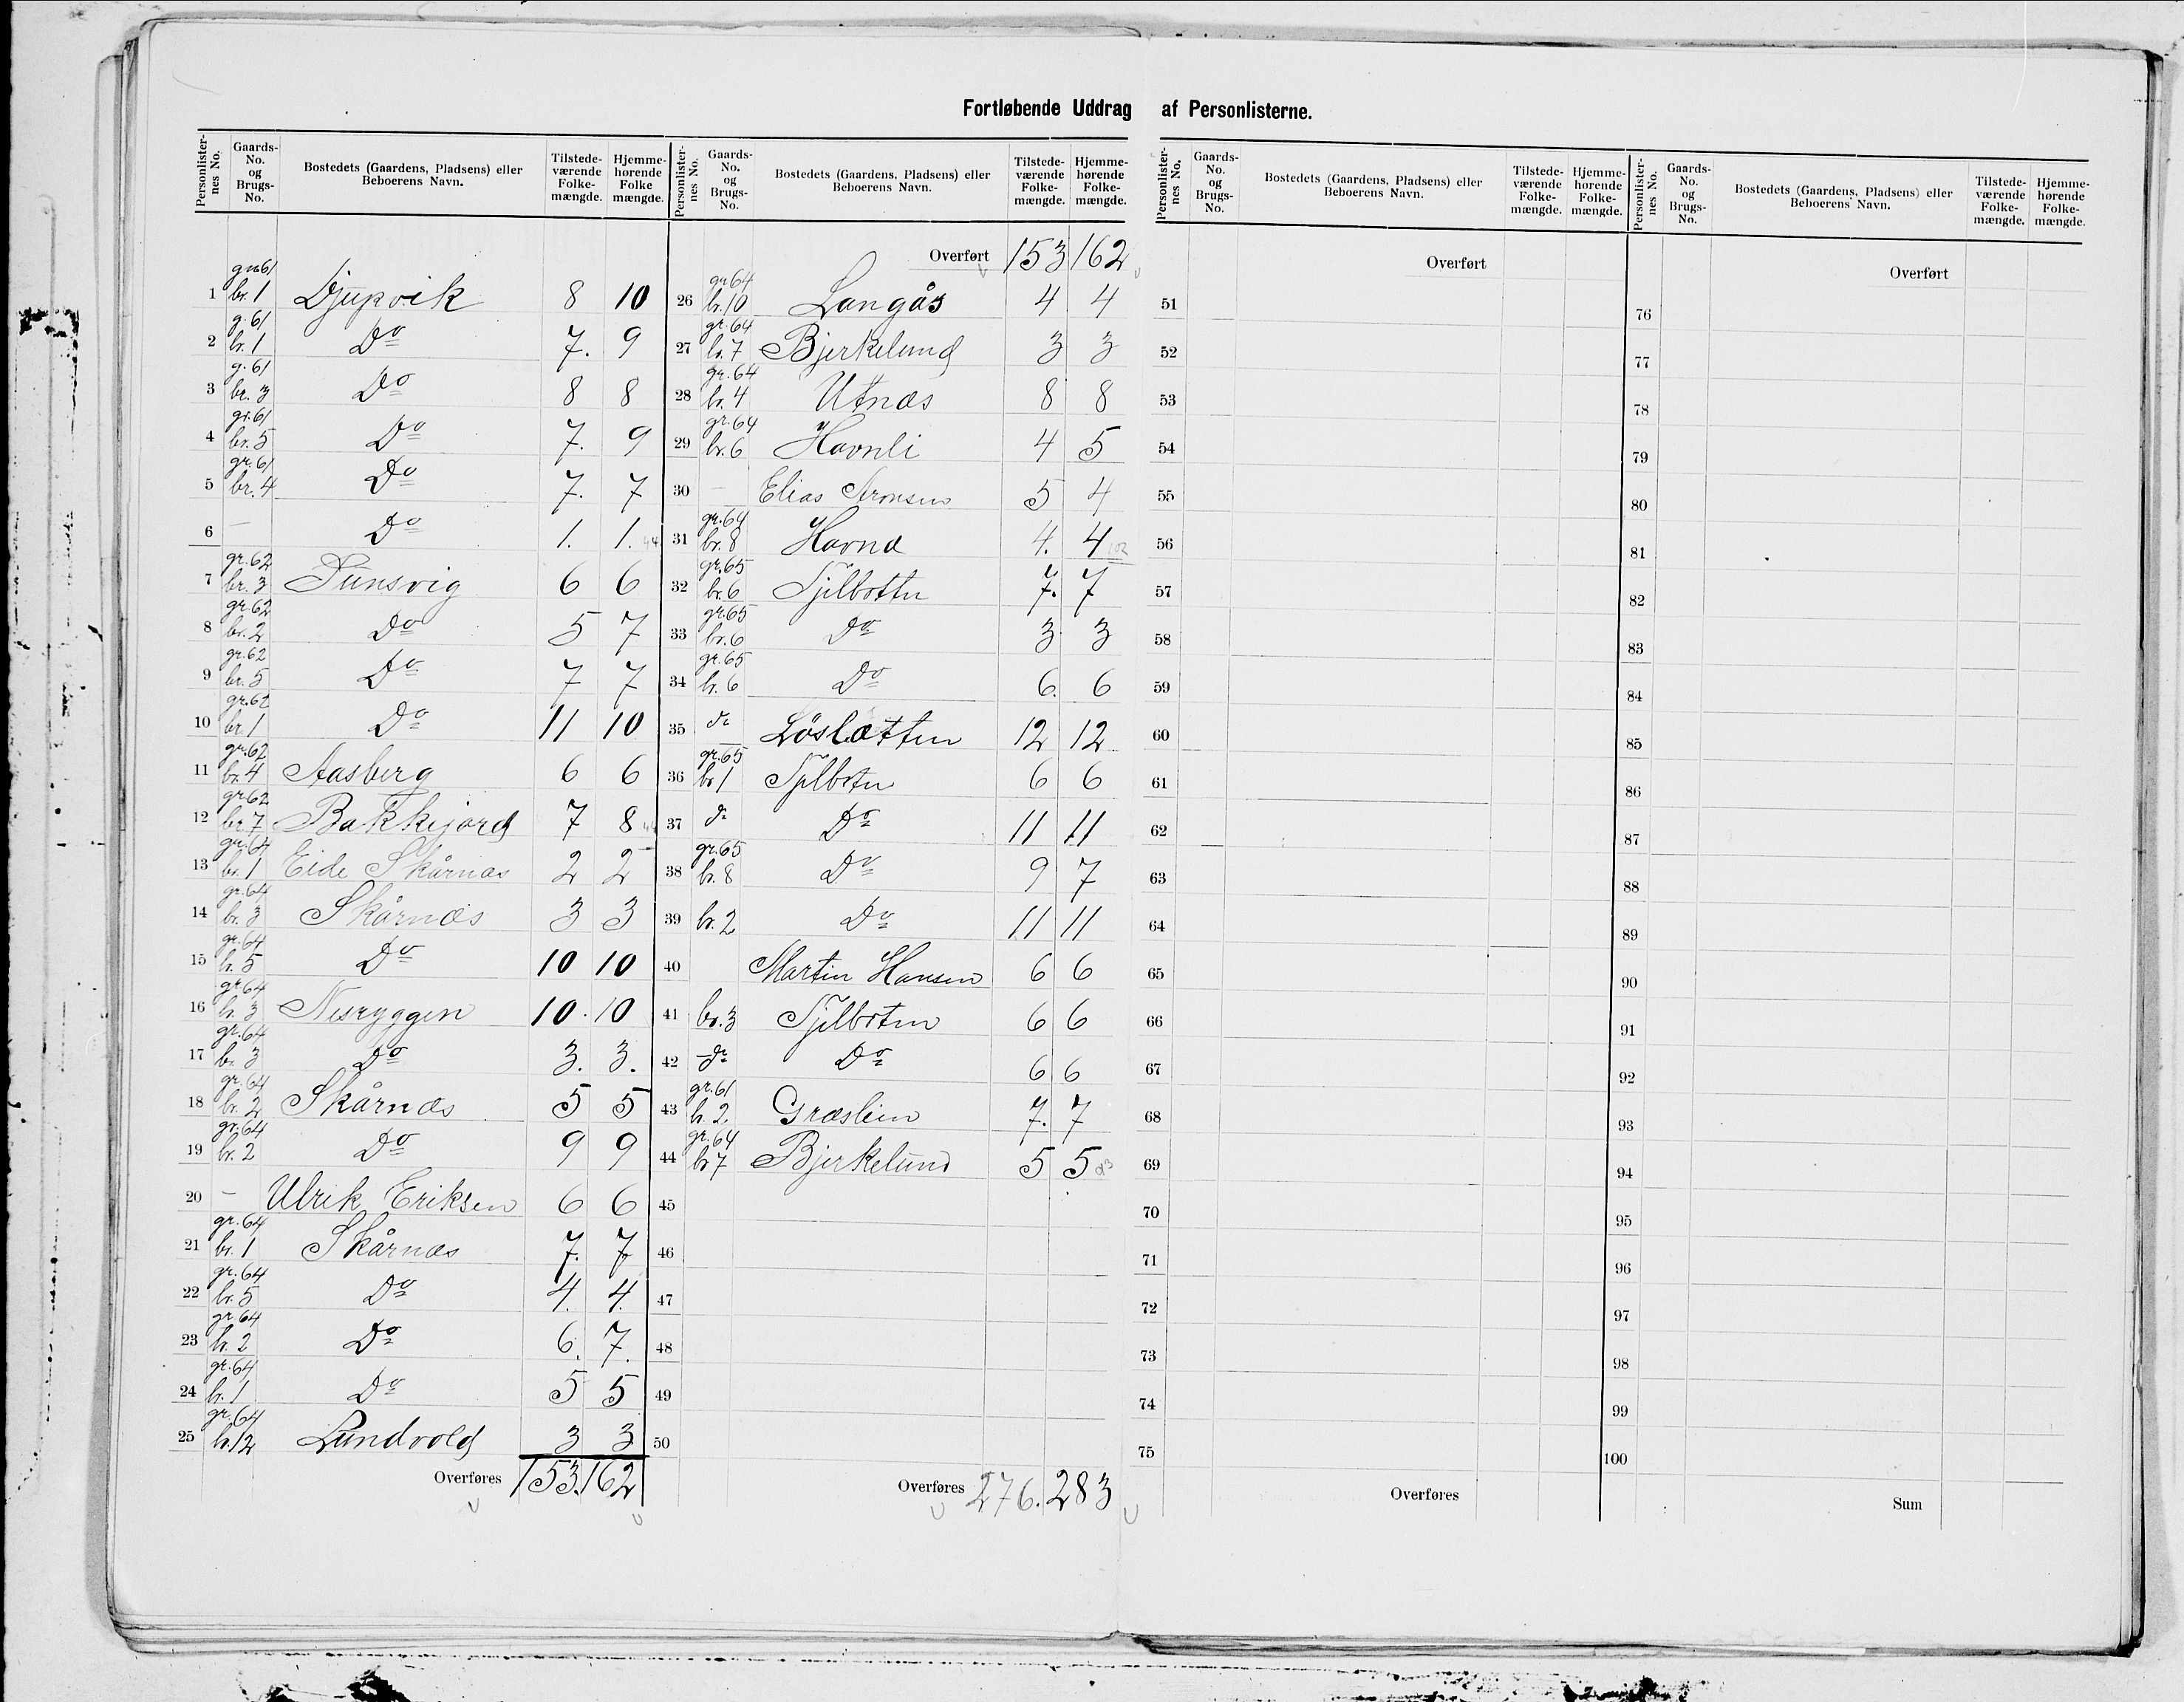 Fortløbende Uddrag af Personlisterne.
Personlisternes No. Gaards-No. og Brugs-No. Bostedets (Gaardens, Pladsens) eller Beboerens Navn. Tilstedeværende Folkemængde. Hjemmehørende Folkemængde.
1 gr 61 br. 1 Djupvik 8 10
2 g. 61 br. 1 Do 7. 9
3 g. 61 br. 3 Do 8 8
4 gr. 61 br. 5 Do 7. 9
5 gr. 61 br. 4 Do 7. 7
6 — Do 1. 1.
7 gr. 62 br. 3 Sunsvig 6 6
8 gr. 62 br. 2 Do 5 7
9 gr. 62 br. 5 Do 7 7
10 gr. 62 br. 1 Do 11 10
11 gr. 62 br. 4 Aasberg 6 6
12 gr. 62 br. 7 Bakkejord 7 8
13 gr. 64 br. 1 Eide Skårnæs 2 2
14 gr. 64 br. 3 Skårnæs 3 3
15 gr. 64 br. 5 Do 10 10
16 gr. 64 br. 3 Nesryggen 10. 10
17 gr. 64 br. 3 Do 3. 3.
18 gr. 64 br. 2 Skårnæs 5 5
19 gr. 64 br. 2 Do 9 9
20 — Ulrik Eriksen 6 6
21 gr. 64 br. 1 Skårnæs 7. 7
22 gr. 64 br. 5 Do 4. 4.
23 gr. 64 br. 2 Do 6. 7.
24 gr. 64 br. 1 Do 5 5
25 gr. 64 br. 12 Lundvold 3 3
Overføres 153. 162
Personlisternes No. Gaards-No. og Brugs-No. Bostedets (Gaardens, Pladsens) eller Beboerens Navn. Tilstedeværende Folkemængde. Hjemmehørende Folkemængde.
Overført 153 162
26 gr 64 br. 10 Langås 4 4
27 gr. 64 br. 7 Bjerkelund 3 3
28 gr. 64 br. 4 Utnæs 8 8
29 gr. 64 br. 6 Havnli 4 5
30 — Elias Aronsen 5 4
31 gr. 64 br. 8 Havna 4. 4 102
32 gr. 65 br. 6 Tjelbotten 7. 7
33 gr. 65 br. 6 Do 3 3
34 gr. 65 br. 6 Do 6. 6
35 do Løslætten 12 12
36 gr. 65 br 1 Tjelbotn 6 6
37 do Do 11 11
38 gr. 65 br. 8 Do 9 7
39 br. 2 Do 11 11
40 Martin Hansen 6 6
41 br. 3 Tjelboten 6 6
42 do Do 6 6
43 gr. 61 br. 2 Græslien 7. 7
44 gr. 64 br 7 Bjerkelund 5 5
45
46
47
48
49
50
Overføres 276. 283
Personlisternes No. Gaards-No. og Brugs-No. Bostedets (Gaardens, Pladsens) eller Beboerens Navn. Tilstedeværende Folkemængde. Hjemmehørende Folkemængde.
Overført
51
52
53
54
55
56
57
58
59
60
61
62
63
64
65
66
67
68
69
70
71
72
73
74
75
Overføres
Personlisternes No. Gaards-No. og Brugs-No. Bostedets (Gaardens, Pladsens) eller Beboerens Navn. Tilstedeværende Folkemængde. Hjemmehørende Folkemængde.
Overført
76
77
78
79
80
81
82
83
84
85
86
87
88
89
90
91
92
93
94
95
96
97
98
99
100
Sum